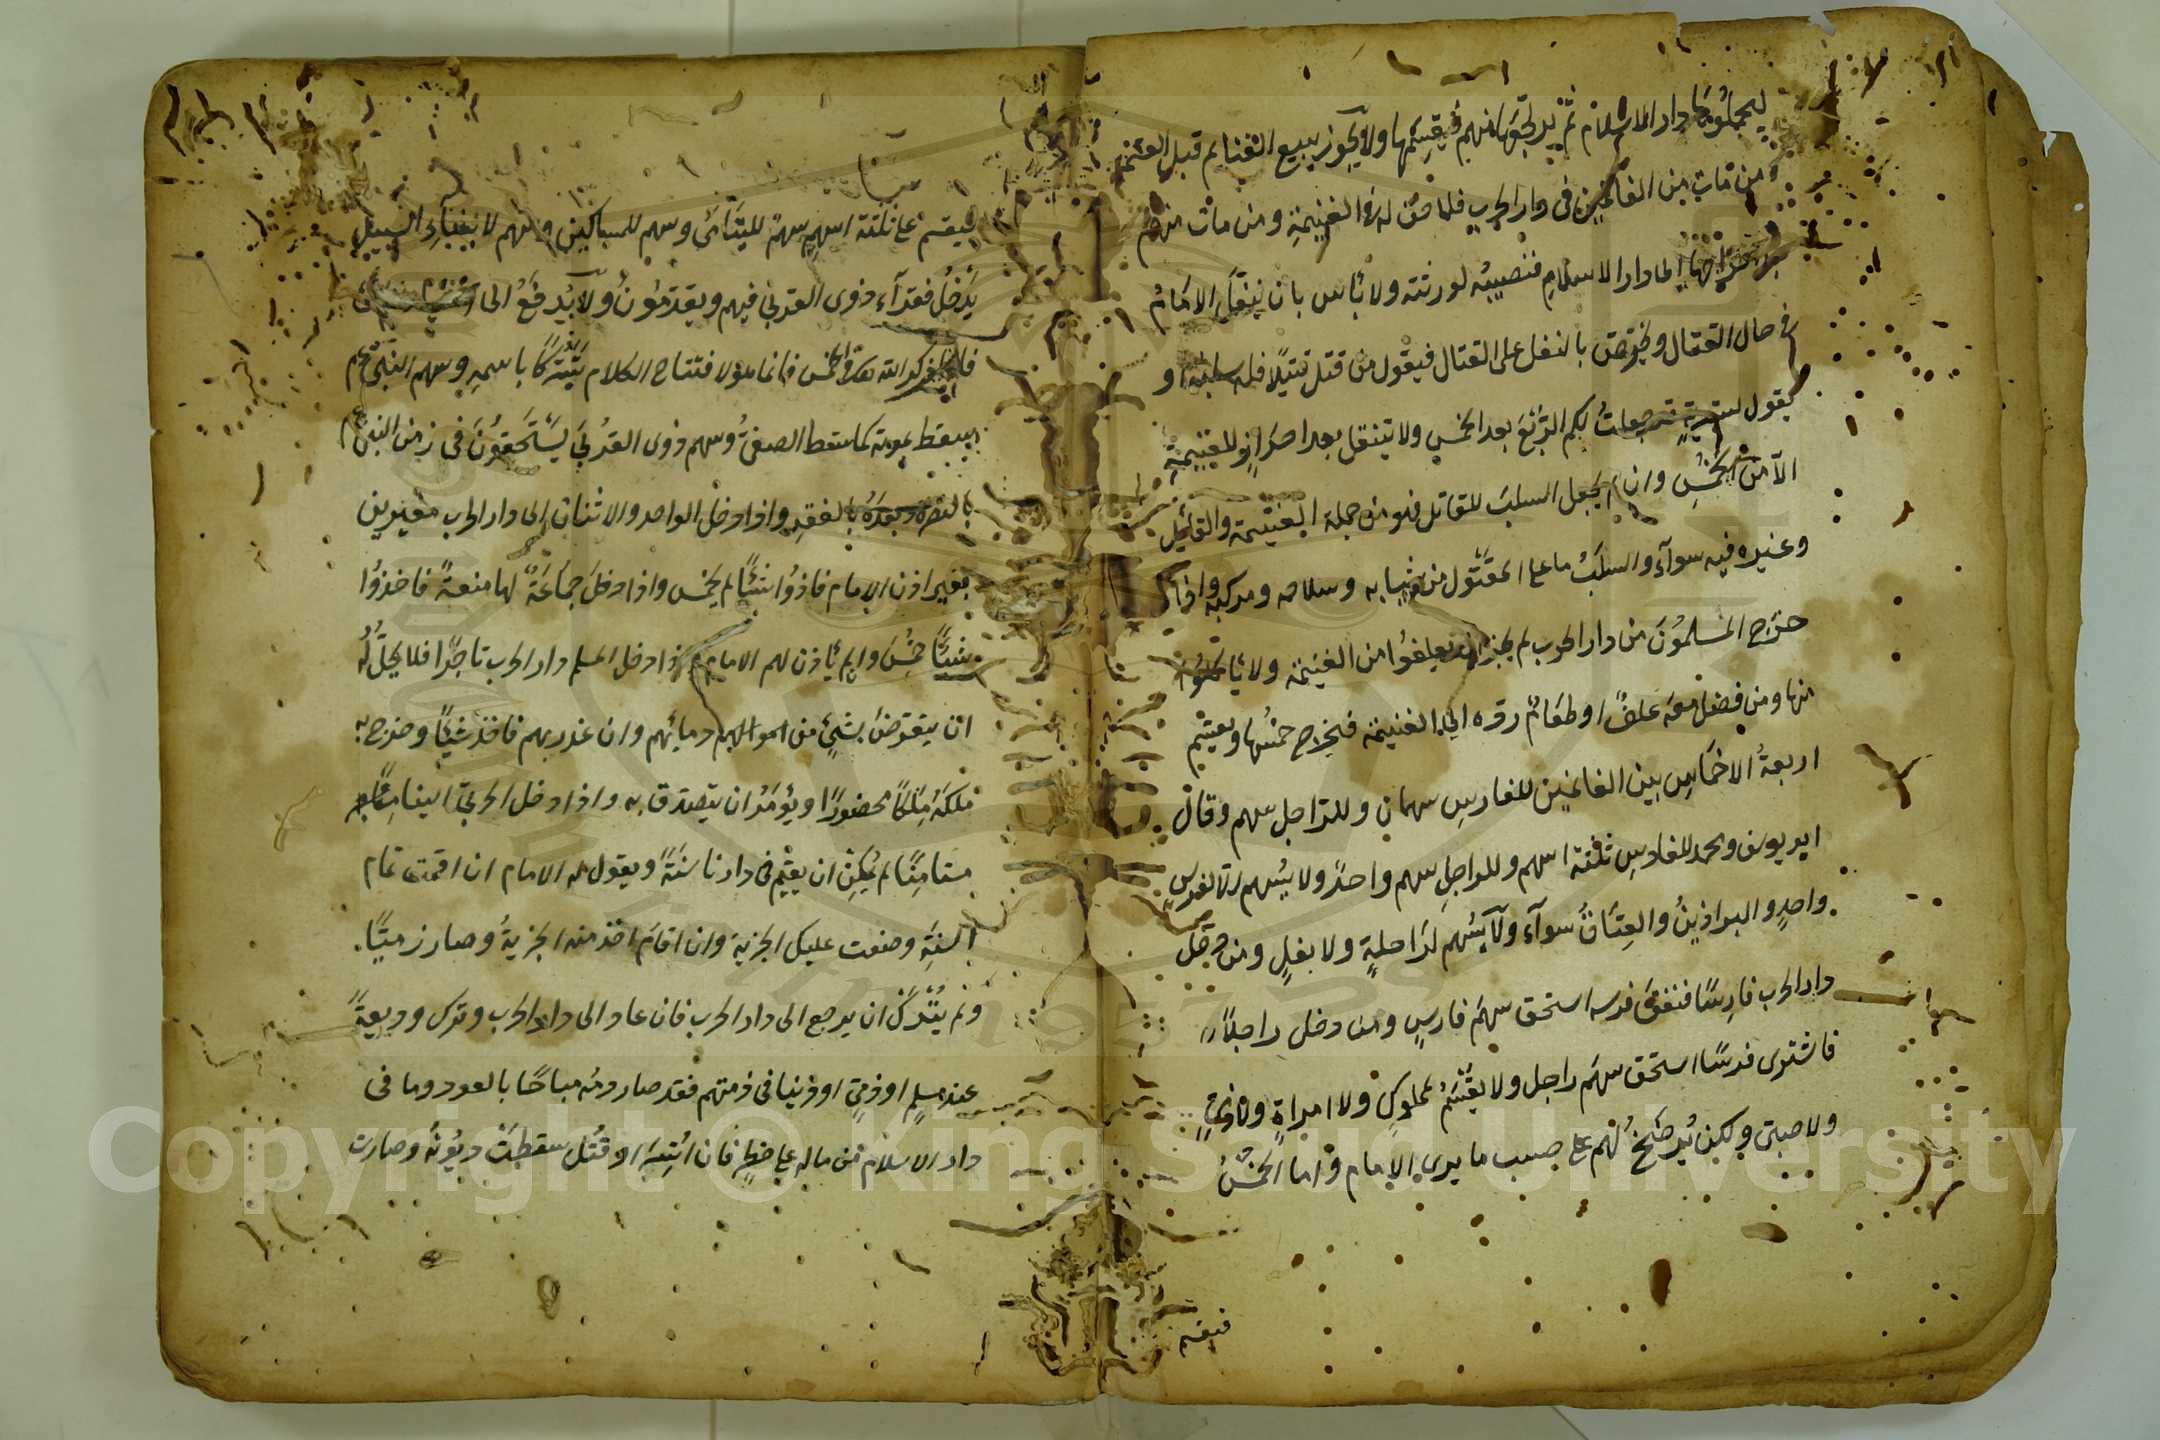 ليحملوها دار الاسلام ثم يرتجعها منهم فيقسمها ولا يجوز بيع الغنايم قبل القسمة
ومن مات من الغانمين في دار الحرب فلا حق له في الغنيمة ومن مات منهم
بعد اخراجها الى دار الاسلام فنصيبه لورثته ولا بأس بان ينفل الامام
في حال القتال ويحرض بالنفل على القتال فيقول من قتل قتيلا فله سلبه او
يقول لسرية قد جعلت لكم الربع بعد الخمس ولا ينفل بعد احراز الغنيمة
الا من الخمس وان لم يجعل السلب للقاتل فهو من جملة الغنيمة والقاتل
وغيره فيه سوآء والسلب ما على المقتول من ثيابه وسلاحه ومركبه واذا
خرج المسلمون من دار الحرب لم يجز ان يعلفوا من الغنيمة ولا ياكلوا
منها ومن فضل معه علف او طعام رده الى الغنيمة فيخرج خمسها ويقسم
اربعة الاخماس بين الغانمين للفارس سهمان وللراجل سهم وقال
ابو يوسف ومحمد للفارس ثلثة اسهم وللراجل سهم واحد ولا يسهم الا لفرس
واحد والبراذين والعتاق سوآء ولا يسهم لراحلة ولا بغل ومن دخل
دار الحرب فارسا فنفق فرسه استحق سهم فارس ومن دخل راجلا
فاشترى فرسا استحق سهم راجل ولا يقسم لمملوك ولا امراة ولا ذمي
ولا صبي ولكن يرضخ لهم على حسب ما يرى الامام واما الخمس
فيقسم
فيقسم على ثلثة اسهم سهم لليتامى وسهم للمساكين وسهم لابناء السبيل
يدخل فقرآء ذوى القربى فيهم ويقدمون ولا يدفع الى اغنيائهم شئ
فاما ذكر الله في الخمس فانما هو لافتتاح الكلام تبركا باسمه وسهم النبي عم
سقط بموته كما سقط الصفى وسهم ذوى القربى يستحقون في زمن النبي عم
بالنصرة وبعده بالفقر واذا دخل الواحد والاثنان الى دار الحرب مغيرين
بغير اذن الامام فاخذوا شيئا لم يخمس واذا دخل جماعة لها منعة فاخذوا
شيئا خمس وان لم يأذن لهم الامام واذا دخل المسلم دار الحرب تاجرا فلا يحل له
ان يتعرض بشئ من اموالهم ودمائهم وان غدر بهم فاخذ شيئا وخرج به
ملكه ملكا محضورا ويؤمر ان يتصدق به واذا دخل الحربي الينا
مستامنا لم يمكن ان يقيم في دارنا سنة ويقول له الامام ان اقمت تمام
السنة وضعت عليك الجزية وان اقام اخذ منه الجزية وصار ذميا
ولم يترك ان يرجع الى دار الحرب فان عاد الى دار الحرب وترك وديعة
عند مسلم او ذمي او دينا في ذمتهم فقد صار دمه مباحا بالعود وما في
دار الاسلام من ماله على خطر فان اسر او قتل سقطت ديونه وصارت